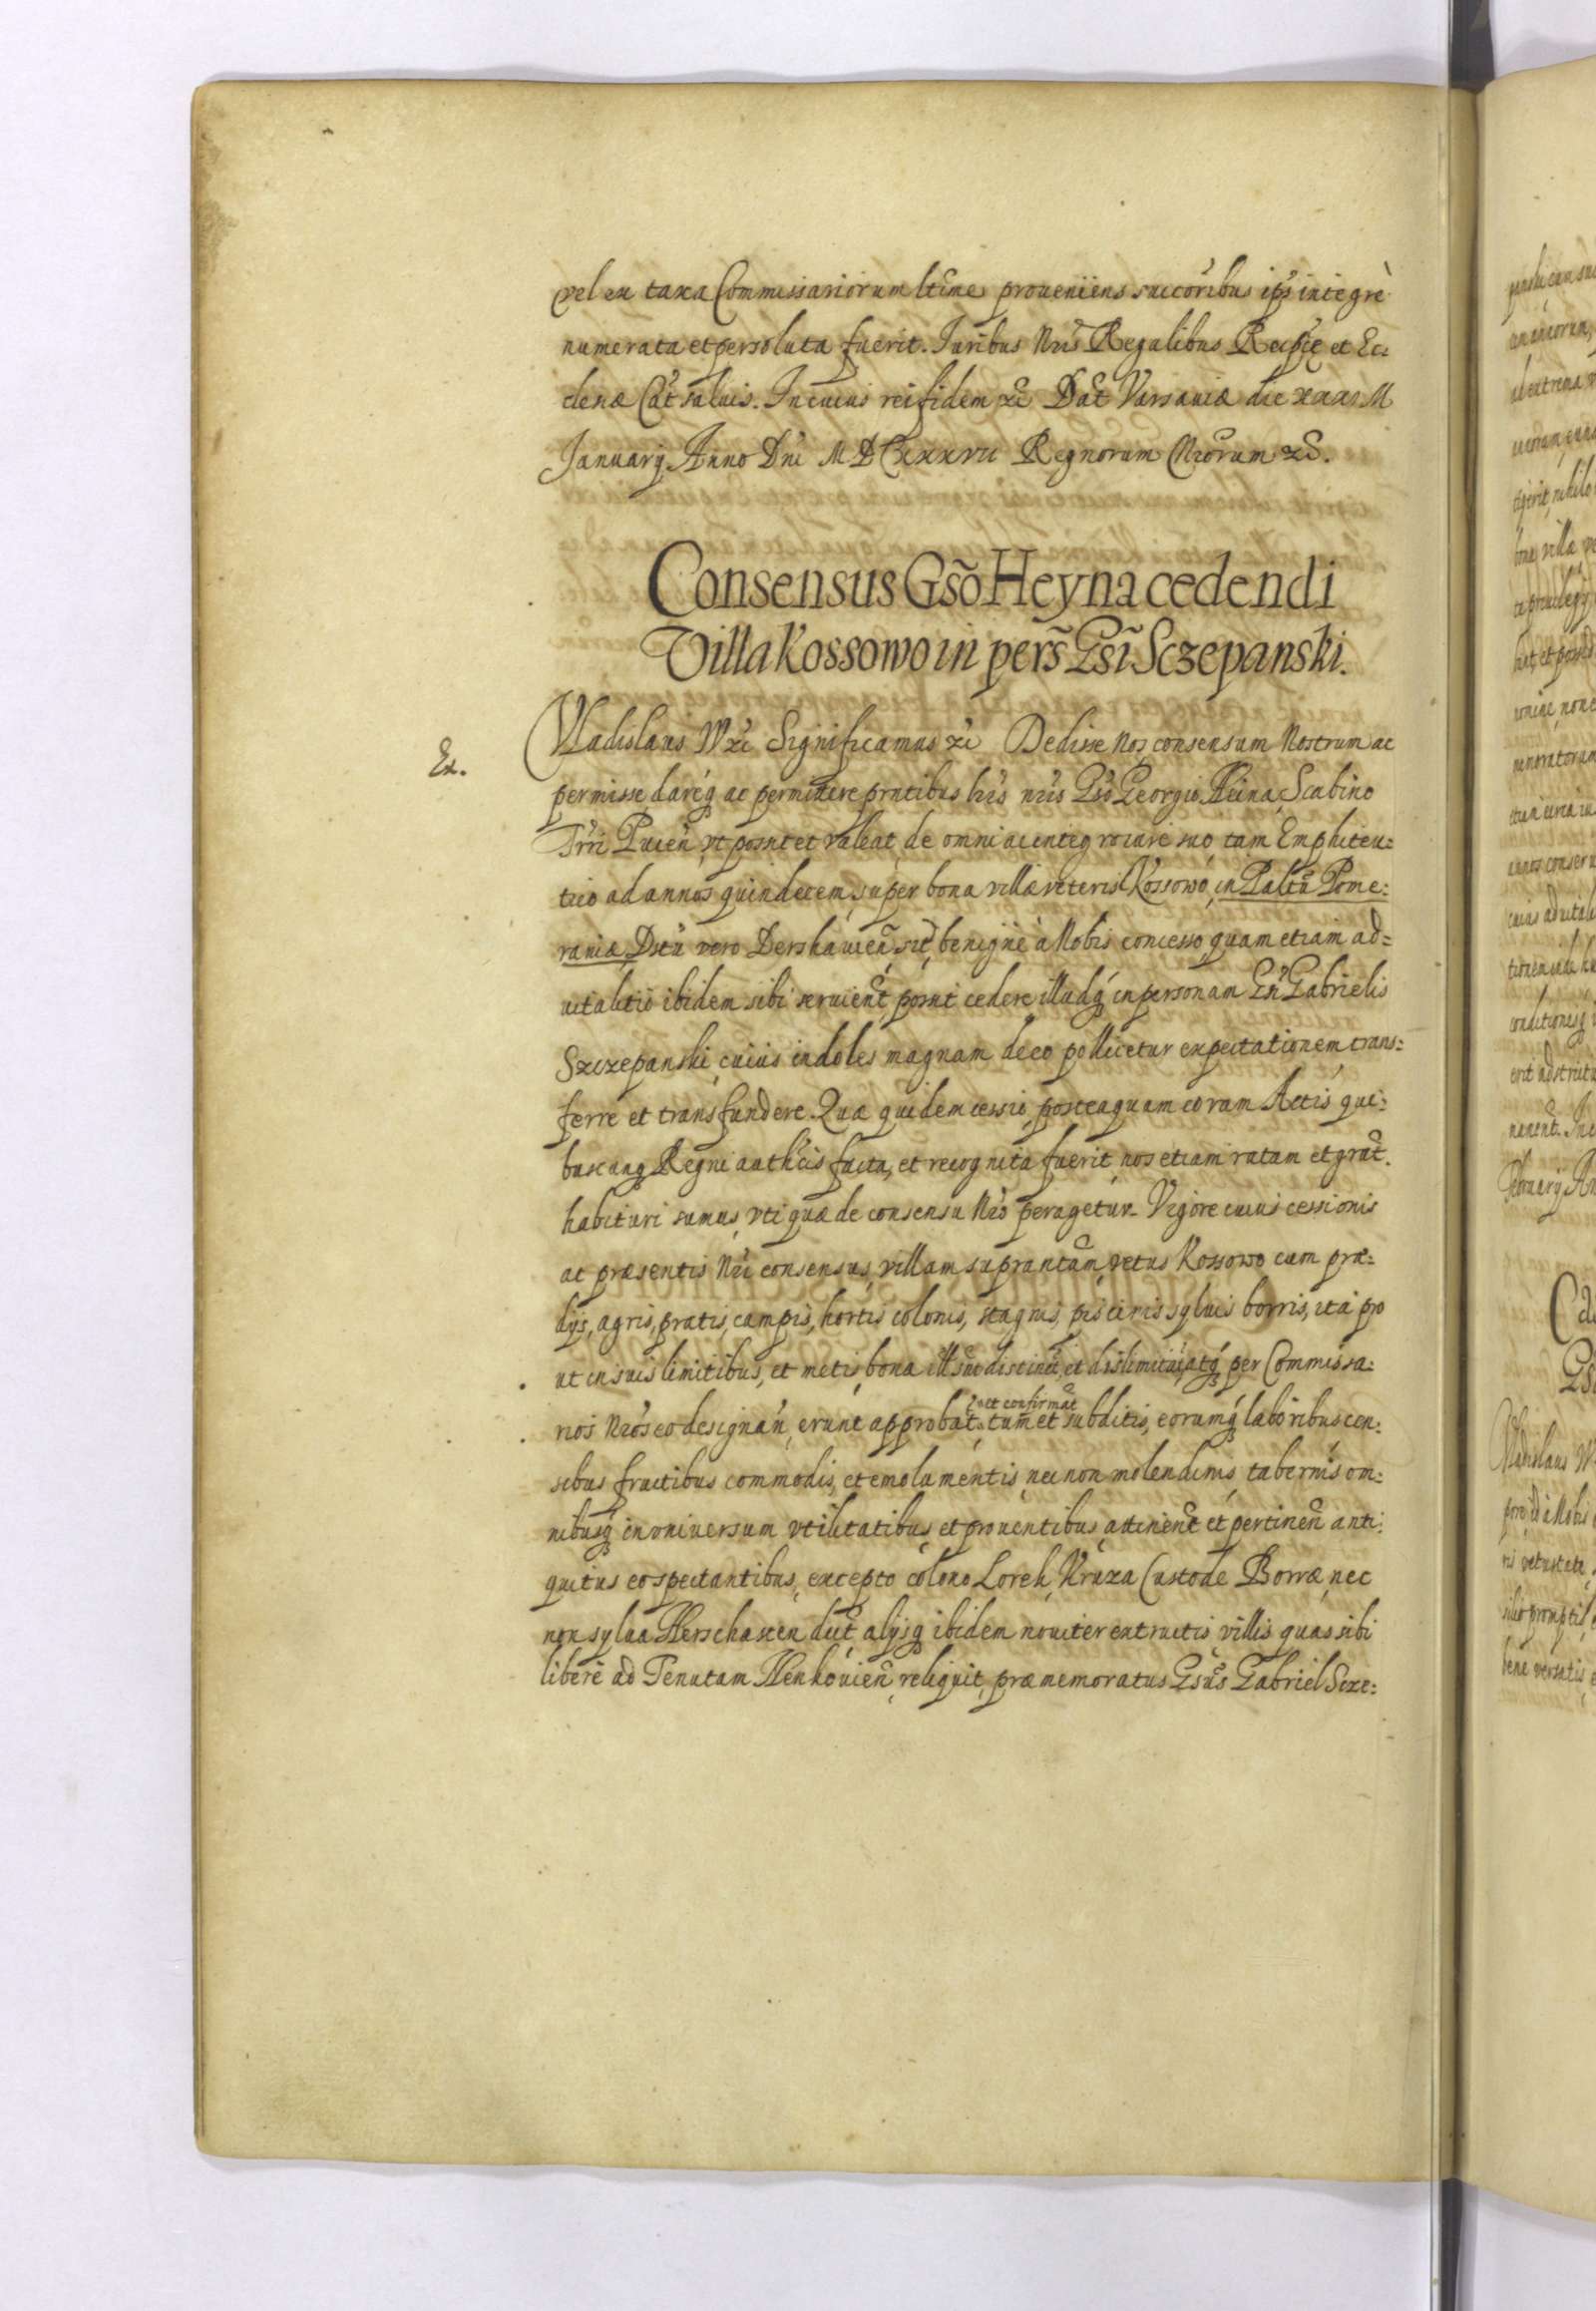 vel ex taxa Commissariorum ltime proveniens succoribus ips integrè
numerata et persoluta fuerit. Iuribus Nris Regalibus Reipce et Ec:
clesæ Cat salvis. In cuius rei fidem xc Dat Varsaviæ die xxxo M
January Anno Dni MDCxxxvii Regnorum Nrorum xc.
Consensus Gso Heyna cedendi
Villa Kossowo in pers Gsi Sczepanski.
Ex.
Vladislaus IV xc Significamus xc Dedisse Nos consensum Nostrum ac
permisse dareq ac permittere prntibus lris nris Gso Georgio Heina Scabino
Trri Pucen, vt possit et valeat, de omni ac integro iure suo tam Emphiteu:
tico ad annos quindecem super bona villæ veteris Kossowo, in Paltu Pome:
raniæ Dstu vero Dershavien sit, benignè à Nobis concesso, quam etiam ad=
vitalitio ibidem sibi servient possit cedere illudq in personam Gn Gabrielis
Szczepanski, cuius indoles magnam de eo pollicetur expectationem trans:
ferre et transfundere. Quæ quidem cessio, posteaquam coram Actis qui:
buscunq Regni authcis facta, et recognita fuerit, nos etiam ratam et grat.
habituri sumus, vti quæ de consensu Nro peragetur. Vigore cuius cessionis
ac præsentis Nri consensus, villam suprantam, vetus Kossowo cum præ:
dys, agris, pratis, campis, hortis colonis, stagnis, piscinis sylvis borris, ità pro
ut in suis limitibus, et metis, bona ill sunt distinct, et dislimitat, atq per Commissa:
rios Nros eo designan, erunt approbat et confirmat tum et subditis, eorumq laboribus cen:
sibus fructibus commodis, et emolumentis, nec non molendinis, tabernis om:
nibusq in universum vtilitatibus, et proventibus, attinent et pertinen anti:
quitus eo spectantibus, excepto colono Lorek, Kruza Custode Borræ, nec
non sylva Herschasten dict, alysq ibidem noviter extructis villis quas sibi
liberè ad Tenutam Henkovien, reliquit, præmemoratus Gsus Gabriel Scze: